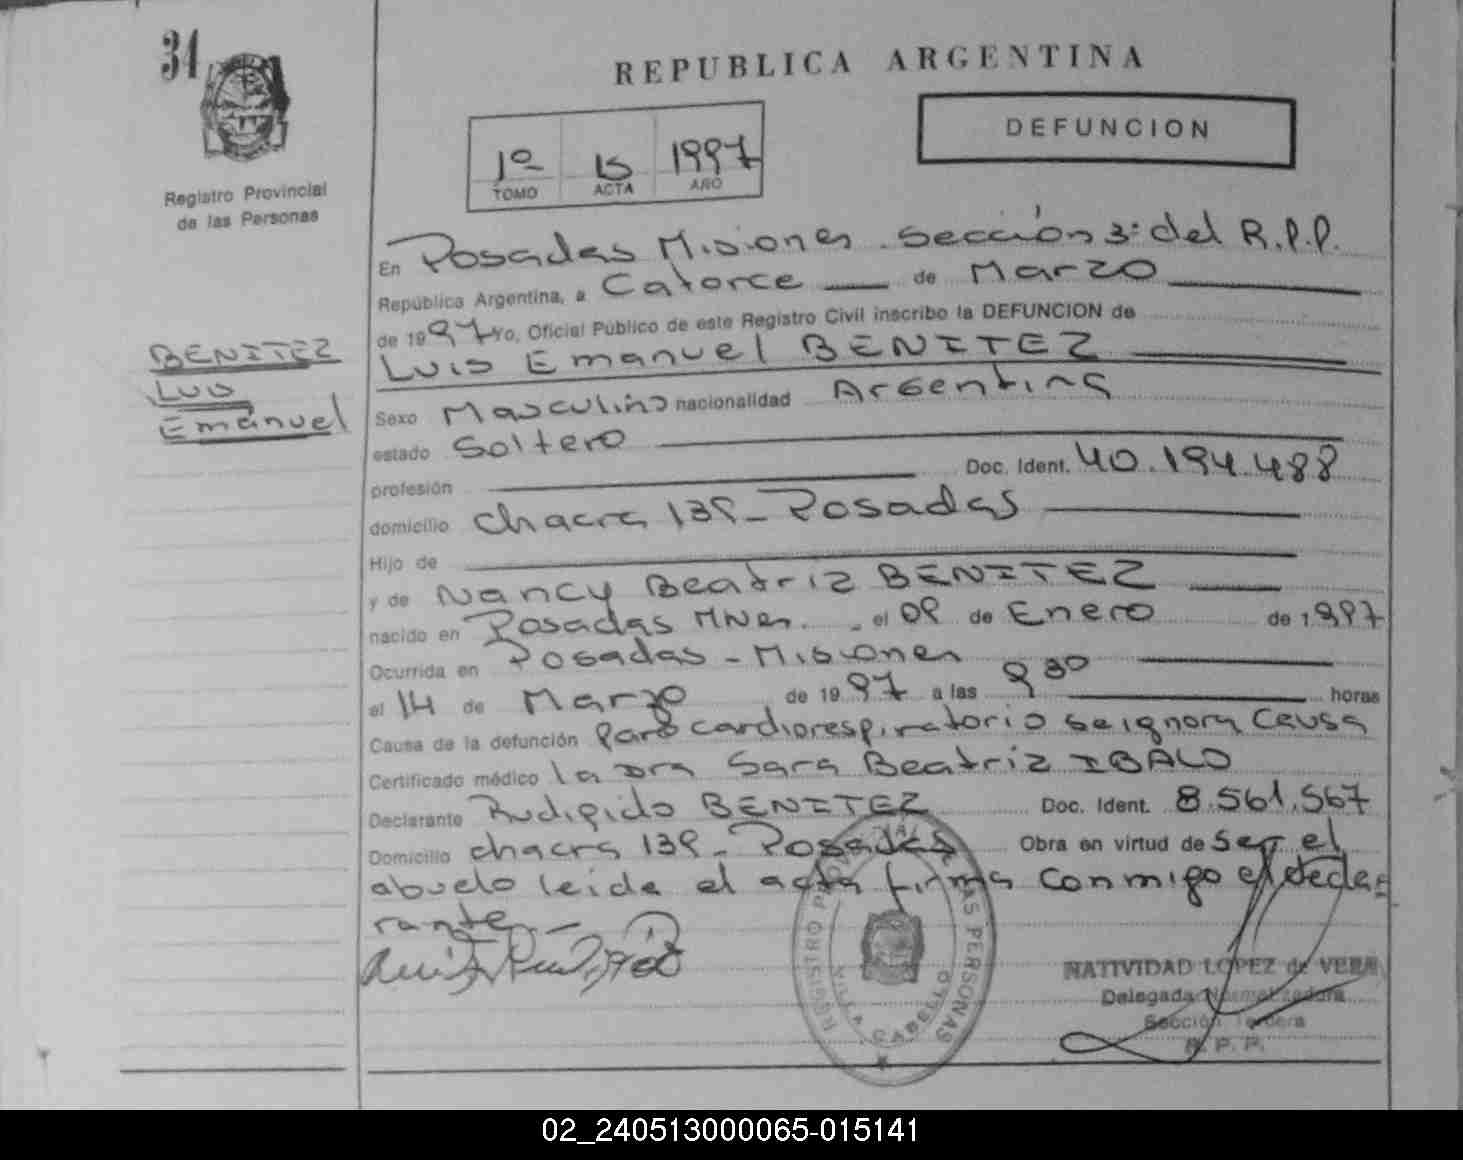 34
REPUBLICA ARGENTINA
DEFUNCION
1º 15 1997
TOMO ACTA AÑO
Registro Provincial
de las Personas
BENITEZ
Luis
Emanuel
En Posadas Misiones. Sección 3ª del R.P.P.
República Argentina, a Catorce de Marzo
de 1997 Yo, Oficial Público de este Registro Civil inscribo la DEFUNCION de
Luis Emanuel BENITEZ
Sexo Masculino nacionalidad Argentina
estado Soltero
profesión Doc. Ident. 40.194.488
domicilio chacra 139 - Posadas
Hijo de
y de Nancy Beatriz BENITEZ
nacido en Posadas Mnes. - el 09 de Enero de 1.997
Ocurrida en Posadas - Misiones
el 14 de Marzo de 1997 a las 9 30 horas
Causa de la defunción Paro cardiorespiratorio se ignora Causa
Certificado médico la Dra Sara Beatriz IBALO
Declarante Rudigido BENITEZ Doc. Ident. 8.561.567
Domicilio chacra 139 - Posadas Obra en virtud de Ser el
abuelo leida el acta firma conmigo el decla-
rante.-
REGISTRO PROVINCIAL DE LAS PERSONAS
VILLA CABELLO
NATIVIDAD LOPEZ de VERA
Delegada Normalizadora
Sección Tercera
R. P. P.
02_240513000065-015141